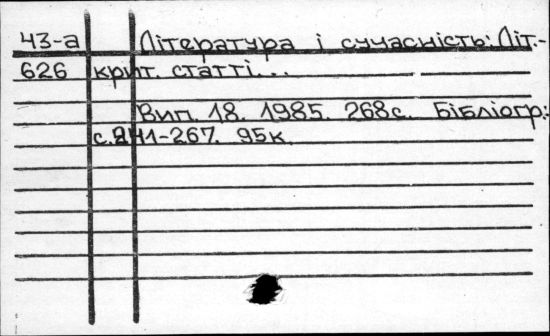 43-а Література і сучасність: Літ.-
626 крит. статті...
Вип. 18. 1985. 268с. Бібліогр.:
с.241-267. 95к.